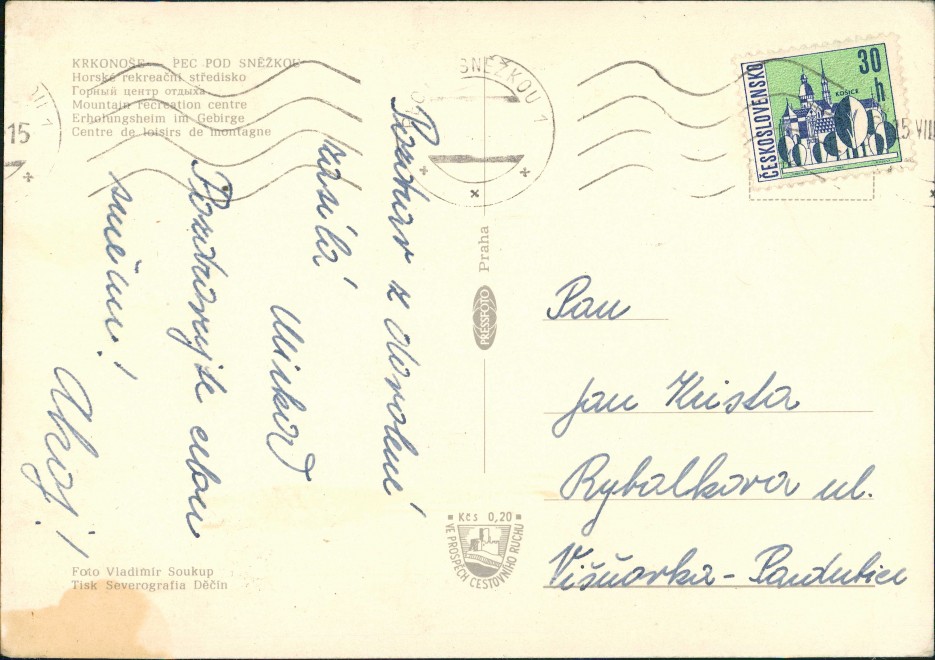 KRKONOŠE — PEC POD SNĚŽKOU
Horské rekreační středisko
Горный центр отдыха
Mountain recreation centre
Erholungsheim im Gebirge
Centre de loisirs de montagne
Pozdrav z dovolené
zasílá
Pozdravujte celou
směnu!
Ahoj!
Foto Vladimír Soukup
Tisk Severografia Děčín
Praha
PRESSFOTO
Kčs 0,20
VE PROSPĚCH CESTOVNÍHO RUCHU
SNĚŽKOU
1
15
15 VIII
ČESKOSLOVENSKO
30 h
KOŠICE
Pan
Jan Krista
Rybalkova ul.
Višňovka - Pardubice